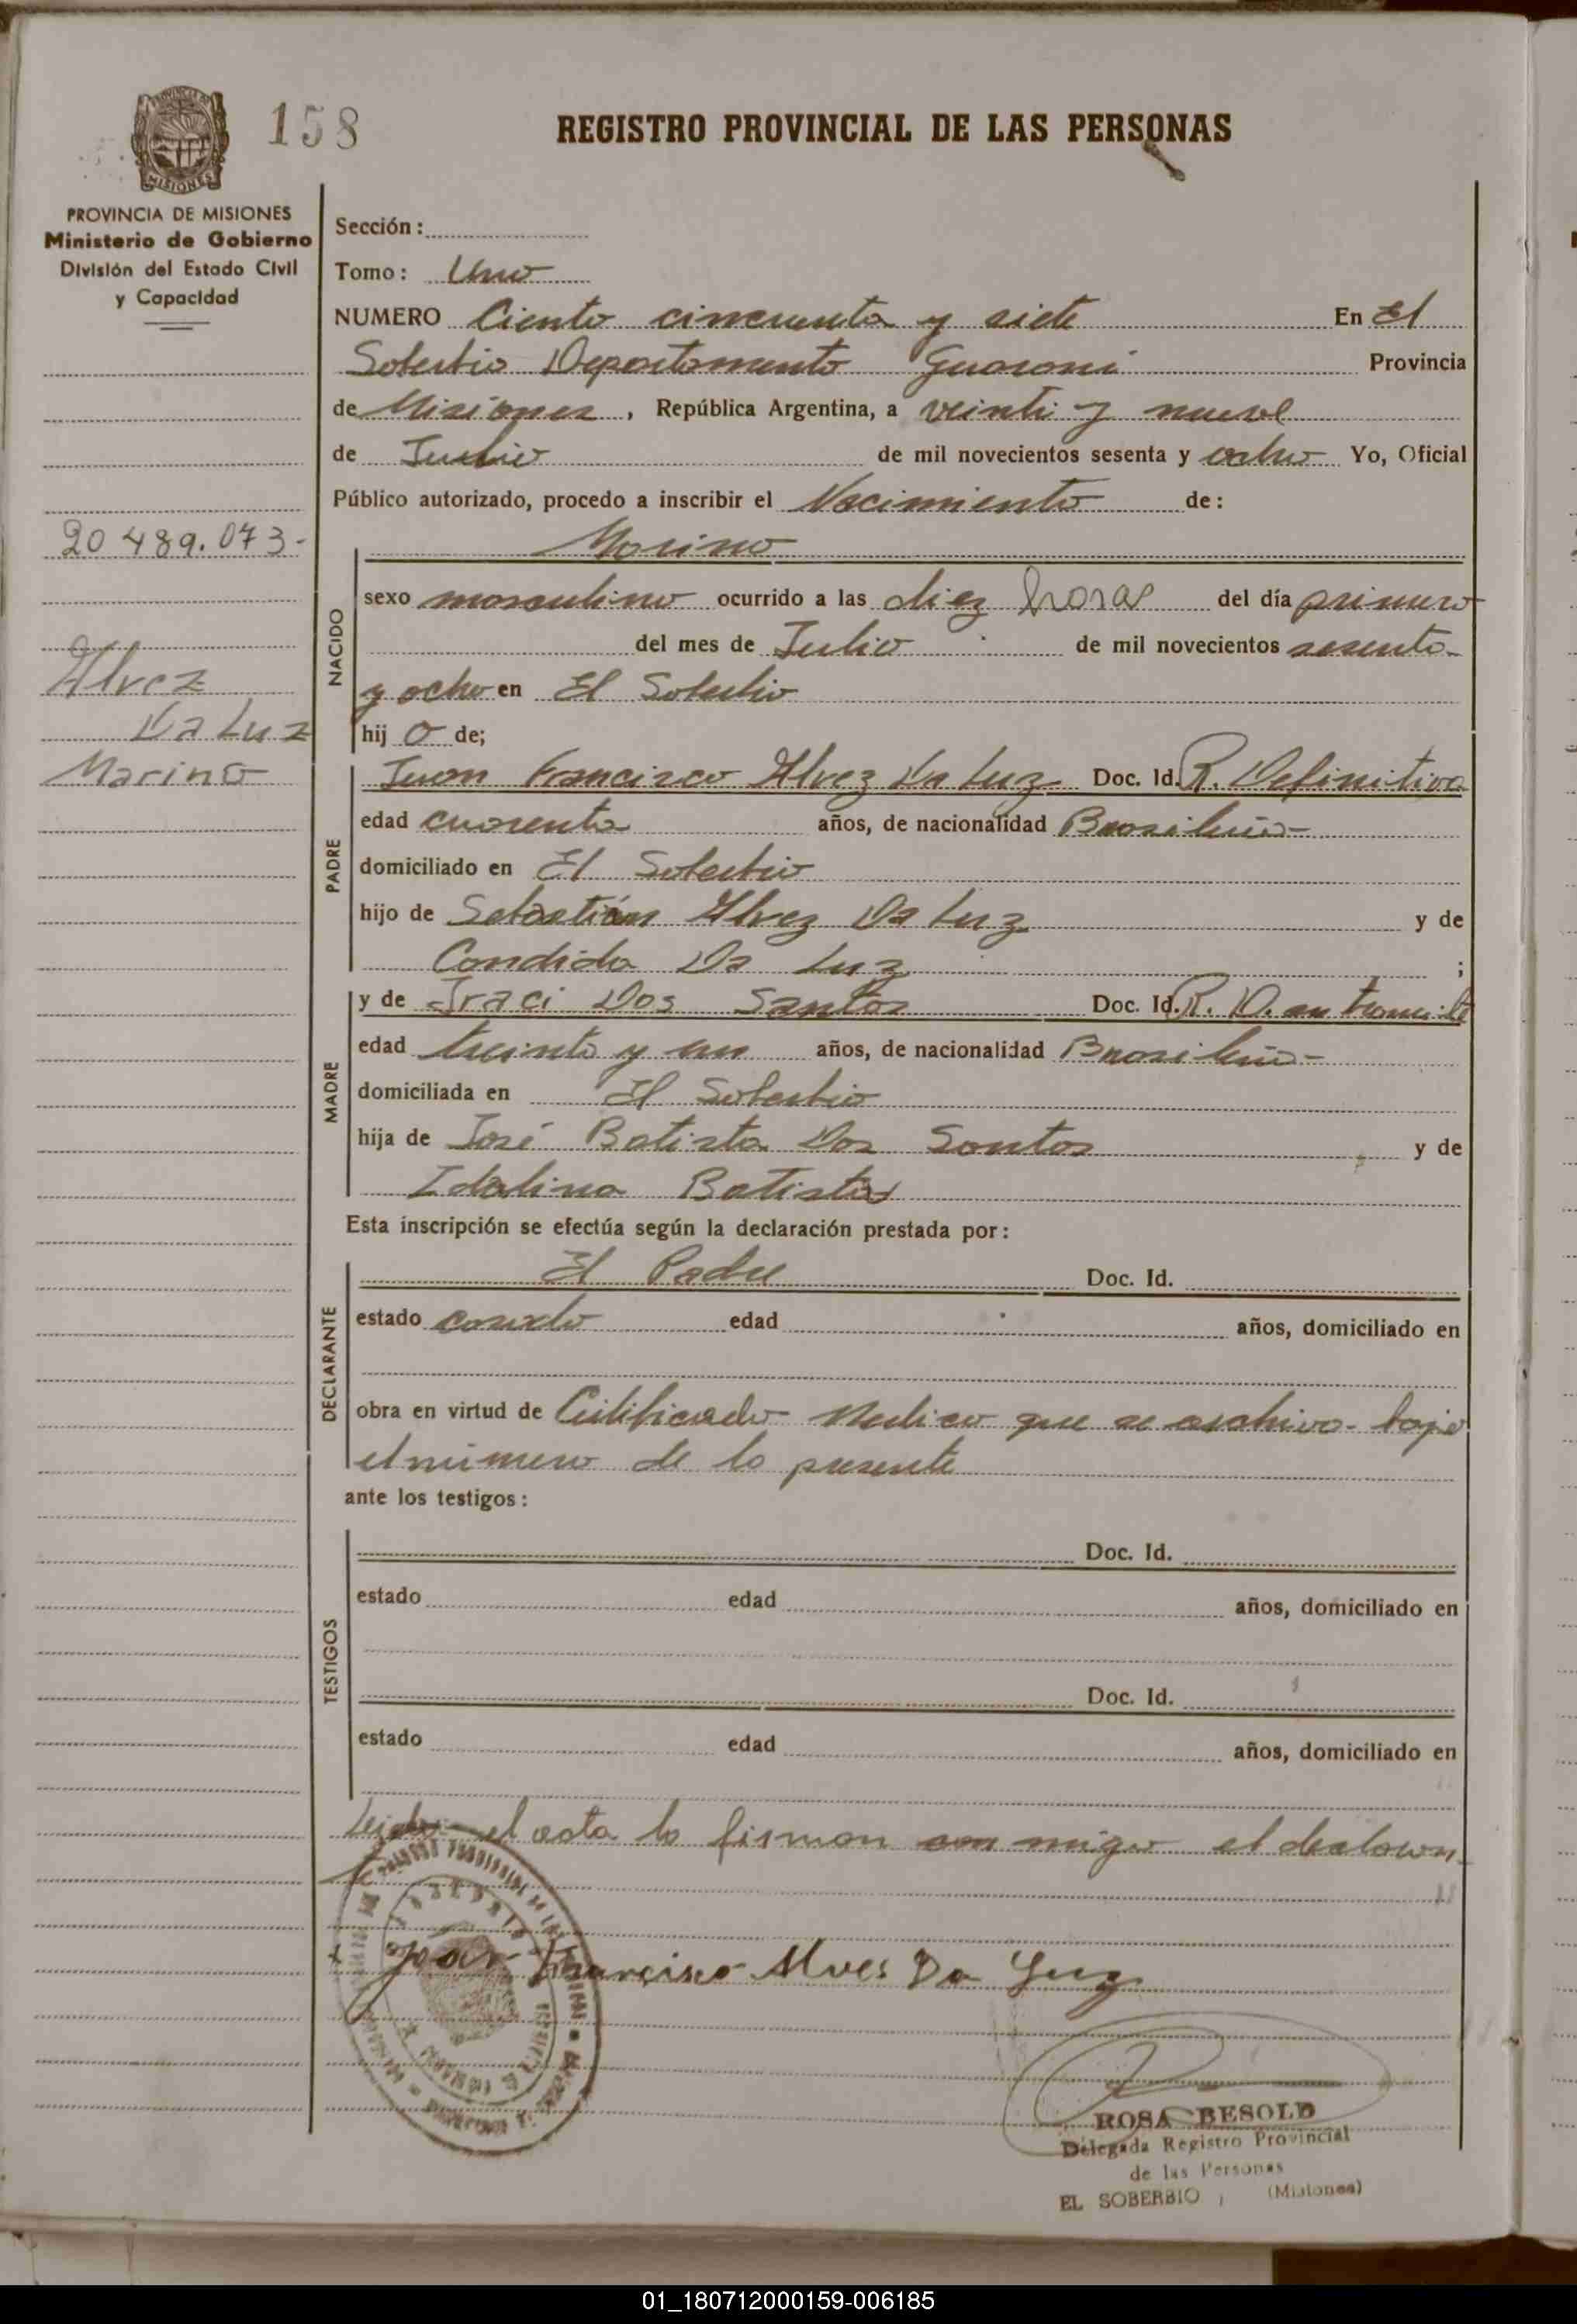 158
REGISTRO PROVINCIAL DE LAS PERSONAS
MISIONES
PROVINCIA DE MISIONES
Ministerio de Gobierno
División del Estado Civil
y Capacidad
20 489.073-
Alvez
Da Luz
Marino
Sección:
Tomo: Uno
NUMERO Ciento cincuenta y siete En El
Soberbio Departamento Guarani Provincia
de Misiones, República Argentina, a veinti y nueve
de Julio de mil novecientos sesenta y ocho Yo, Oficial
Público autorizado, procedo a inscribir el Nacimiento de:
Marino
NACIDO
sexo masculino ocurrido a las diez horas del día primero
del mes de Julio de mil novecientos sesenta
y ocho en El Soberbio
hij o de;
PADRE
Juan Francisco Alvez Da Luz Doc. Id. R. Definitiva
edad cuarenta años, de nacionalidad Brasileña-
domiciliado en El Soberbio
hijo de Sebastián Alvez Da Luz y de
Candida Da Luz ;
MADRE
y de Iraci Dos Santos Doc. Id. R. D. en tramite
edad treinta y un años, de nacionalidad Brasileña-
domiciliada en El Soberbio
hija de José Batista Dos Santos y de
Idalina Batista
Esta inscripción se efectúa según la declaración prestada por:
DECLARANTE
El Padre Doc. Id.
estado casado edad años, domiciliado en
obra en virtud de Certificado Medico que se archiva bajo
el número de la presente
ante los testigos:
TESTIGOS
Doc. Id.
estado edad años, domiciliado en
Doc. Id.
estado edad años, domiciliado en
el acta la firman con migo el
Francisco Alves Da Luz
ROSA BESOLD
Delegada Registro Provincial
de las Personas
EL SOBERBIO (Misiones)
01_180712000159-006185